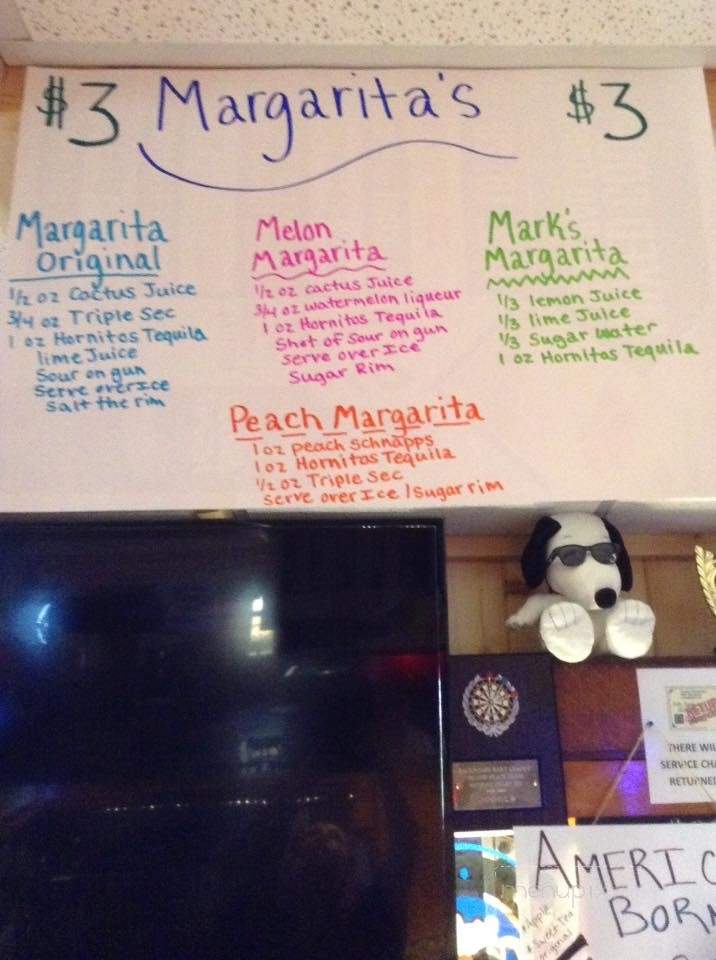 $3 Margarita's $3
Margarita
Original
1/2 oz Cactus Juice
3/4 oz Triple Sec
1 oz Hornitos Tequila
lime Juice
Sour on gun
Serve over ice
Salt the rim
Melon
Margarita
1/2 oz cactus Juice
3/4 oz watermelon liqueur
1 oz Hornitos Tequila
Shot of Sour on gun
Serve over Ice
Sugar Rim
Mark's
Margarita
1/3 lemon Juice
1/3 lime Juice
1/3 Sugar water
1 oz Hornitos Tequila
Peach Margarita
1 oz peach schnapps
1 oz Hornitos Tequila
1/2 oz Triple Sec
Serve over Ice / Sugar rim
THERE WIL
SERVICE CHA
RETURNE
AMERIC
BOR
Apple
Sweet Tea
original
menupix